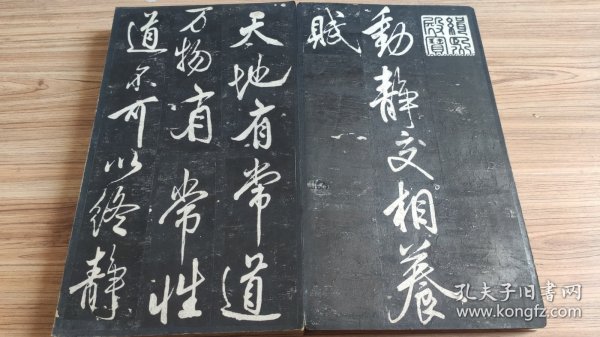 動靜交相養
賦
天地有常道
万物有常性
道不可以終靜
孔夫子旧书网